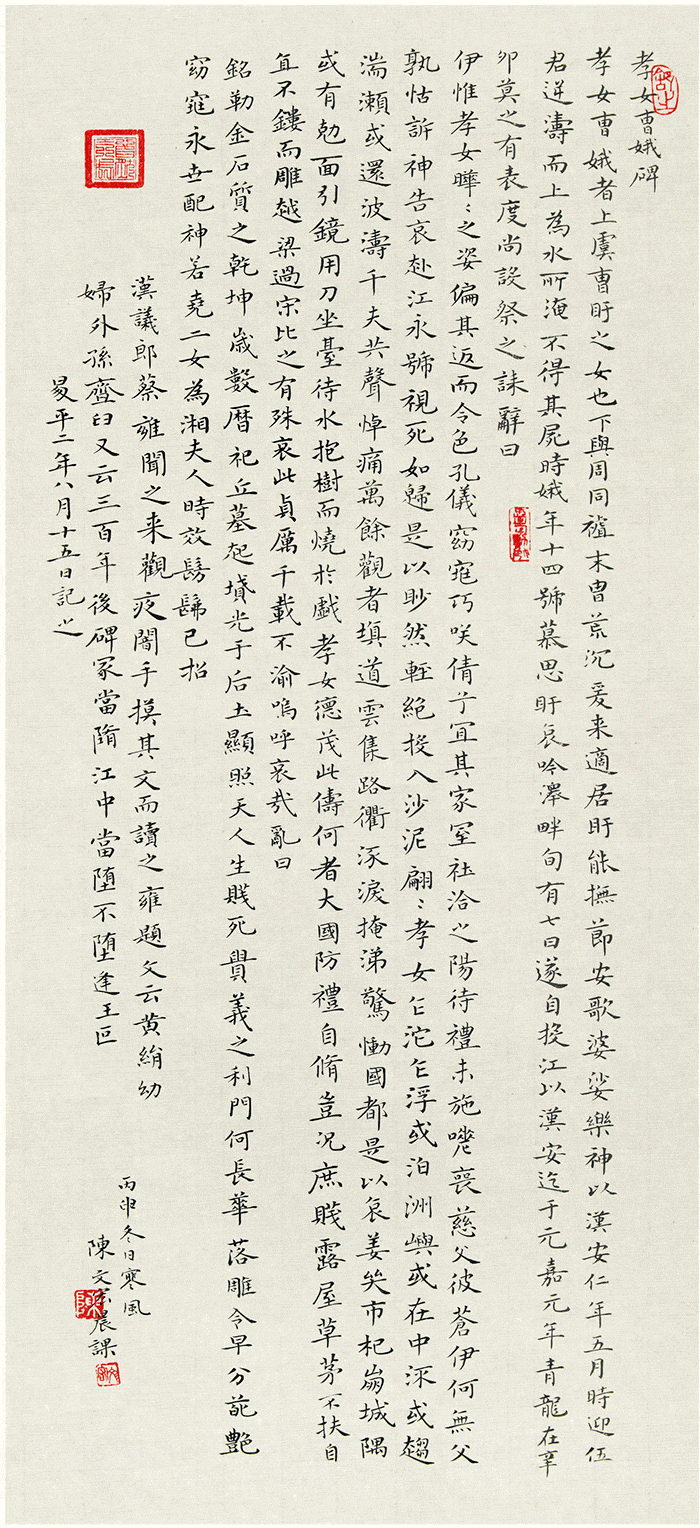 孝女曹娥碑
孝女曹娥者上虞曹盱之女也下與周同禃末胄荒沉爰来適居盱能撫節安歌婆娑樂神以漢安仁年五月時迎伍
君逆濤而上為水所淹不得其屍時娥年十四號慕思盱哀吟澤畔旬有七日遂自投江以漢安迄于元嘉元年青龍在辛
卯莫之有表度尚設祭之誄辭曰
伊惟孝女曄〻之姿偏其返而令色孔儀窈窕巧咲倩兮宜其家室在洽之陽待禮未施嗟喪慈父彼蒼伊何無父
孰怙訴神告哀赴江永號視死如歸是以眇然輕絕投入沙泥翩〻孝女乍沱乍浮或泊洲嶼或在中泙或趨
湍瀬或還波濤千夫共聲悼痛萬餘觀者填道雲集路衢泺淚掩涕驚慟國都是以哀姜哭市杞崩城隅
或有勊面引鏡用刀坐臺待水抱樹而燒於戲孝女德茂此儔何者大國防禮自脩豈况庶賤露屋草茅不扶自
直不鏤而雕越梁過宋比之有殊哀此貞厲千載不渝嗚呼哀哉亂曰
銘勒金石質之乾坤歲數曆祀丘墓起墳光于后土顯照天人生賤死貴義之利門何長華落雕令早分葩艷
窈窕永世配神若堯二女為湘夫人時效髣髴已招
漢議郎蔡雍聞之来觀夜闇手摸其文而讀之雍題文云黄絹幼
婦外孫齏臼又云三百年後碑冢當隋江中當堕不堕逢王叵
昇平二年八月十五日記之
丙申冬日寒風
陳文宏晨課